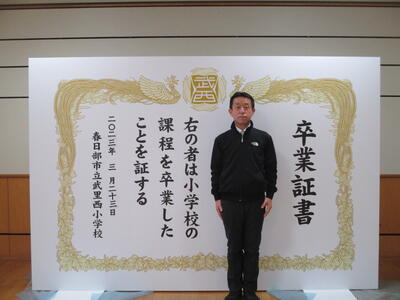 卒業証書
右の者は小学校の
課程を卒業した
ことを証する
二〇二三年 三月二十三日
春日部市立武里西小学校